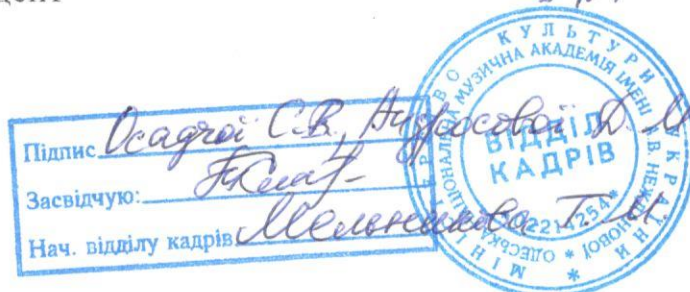 дент
Підпис Осадчої С.В., Андросової Д.
Засвідчую:
Нач. відділу кадрів Мельникова Т. М
МІНІСТЕРСТВО КУЛЬТУРИ УКРАЇНИ *
ОДЕСЬКА НАЦІОНАЛЬНА МУЗИЧНА АКАДЕМІЯ ІМЕНІ А.В. НЕЖДАНОВОЇ *
ВІДДІЛ
КАДРІВ